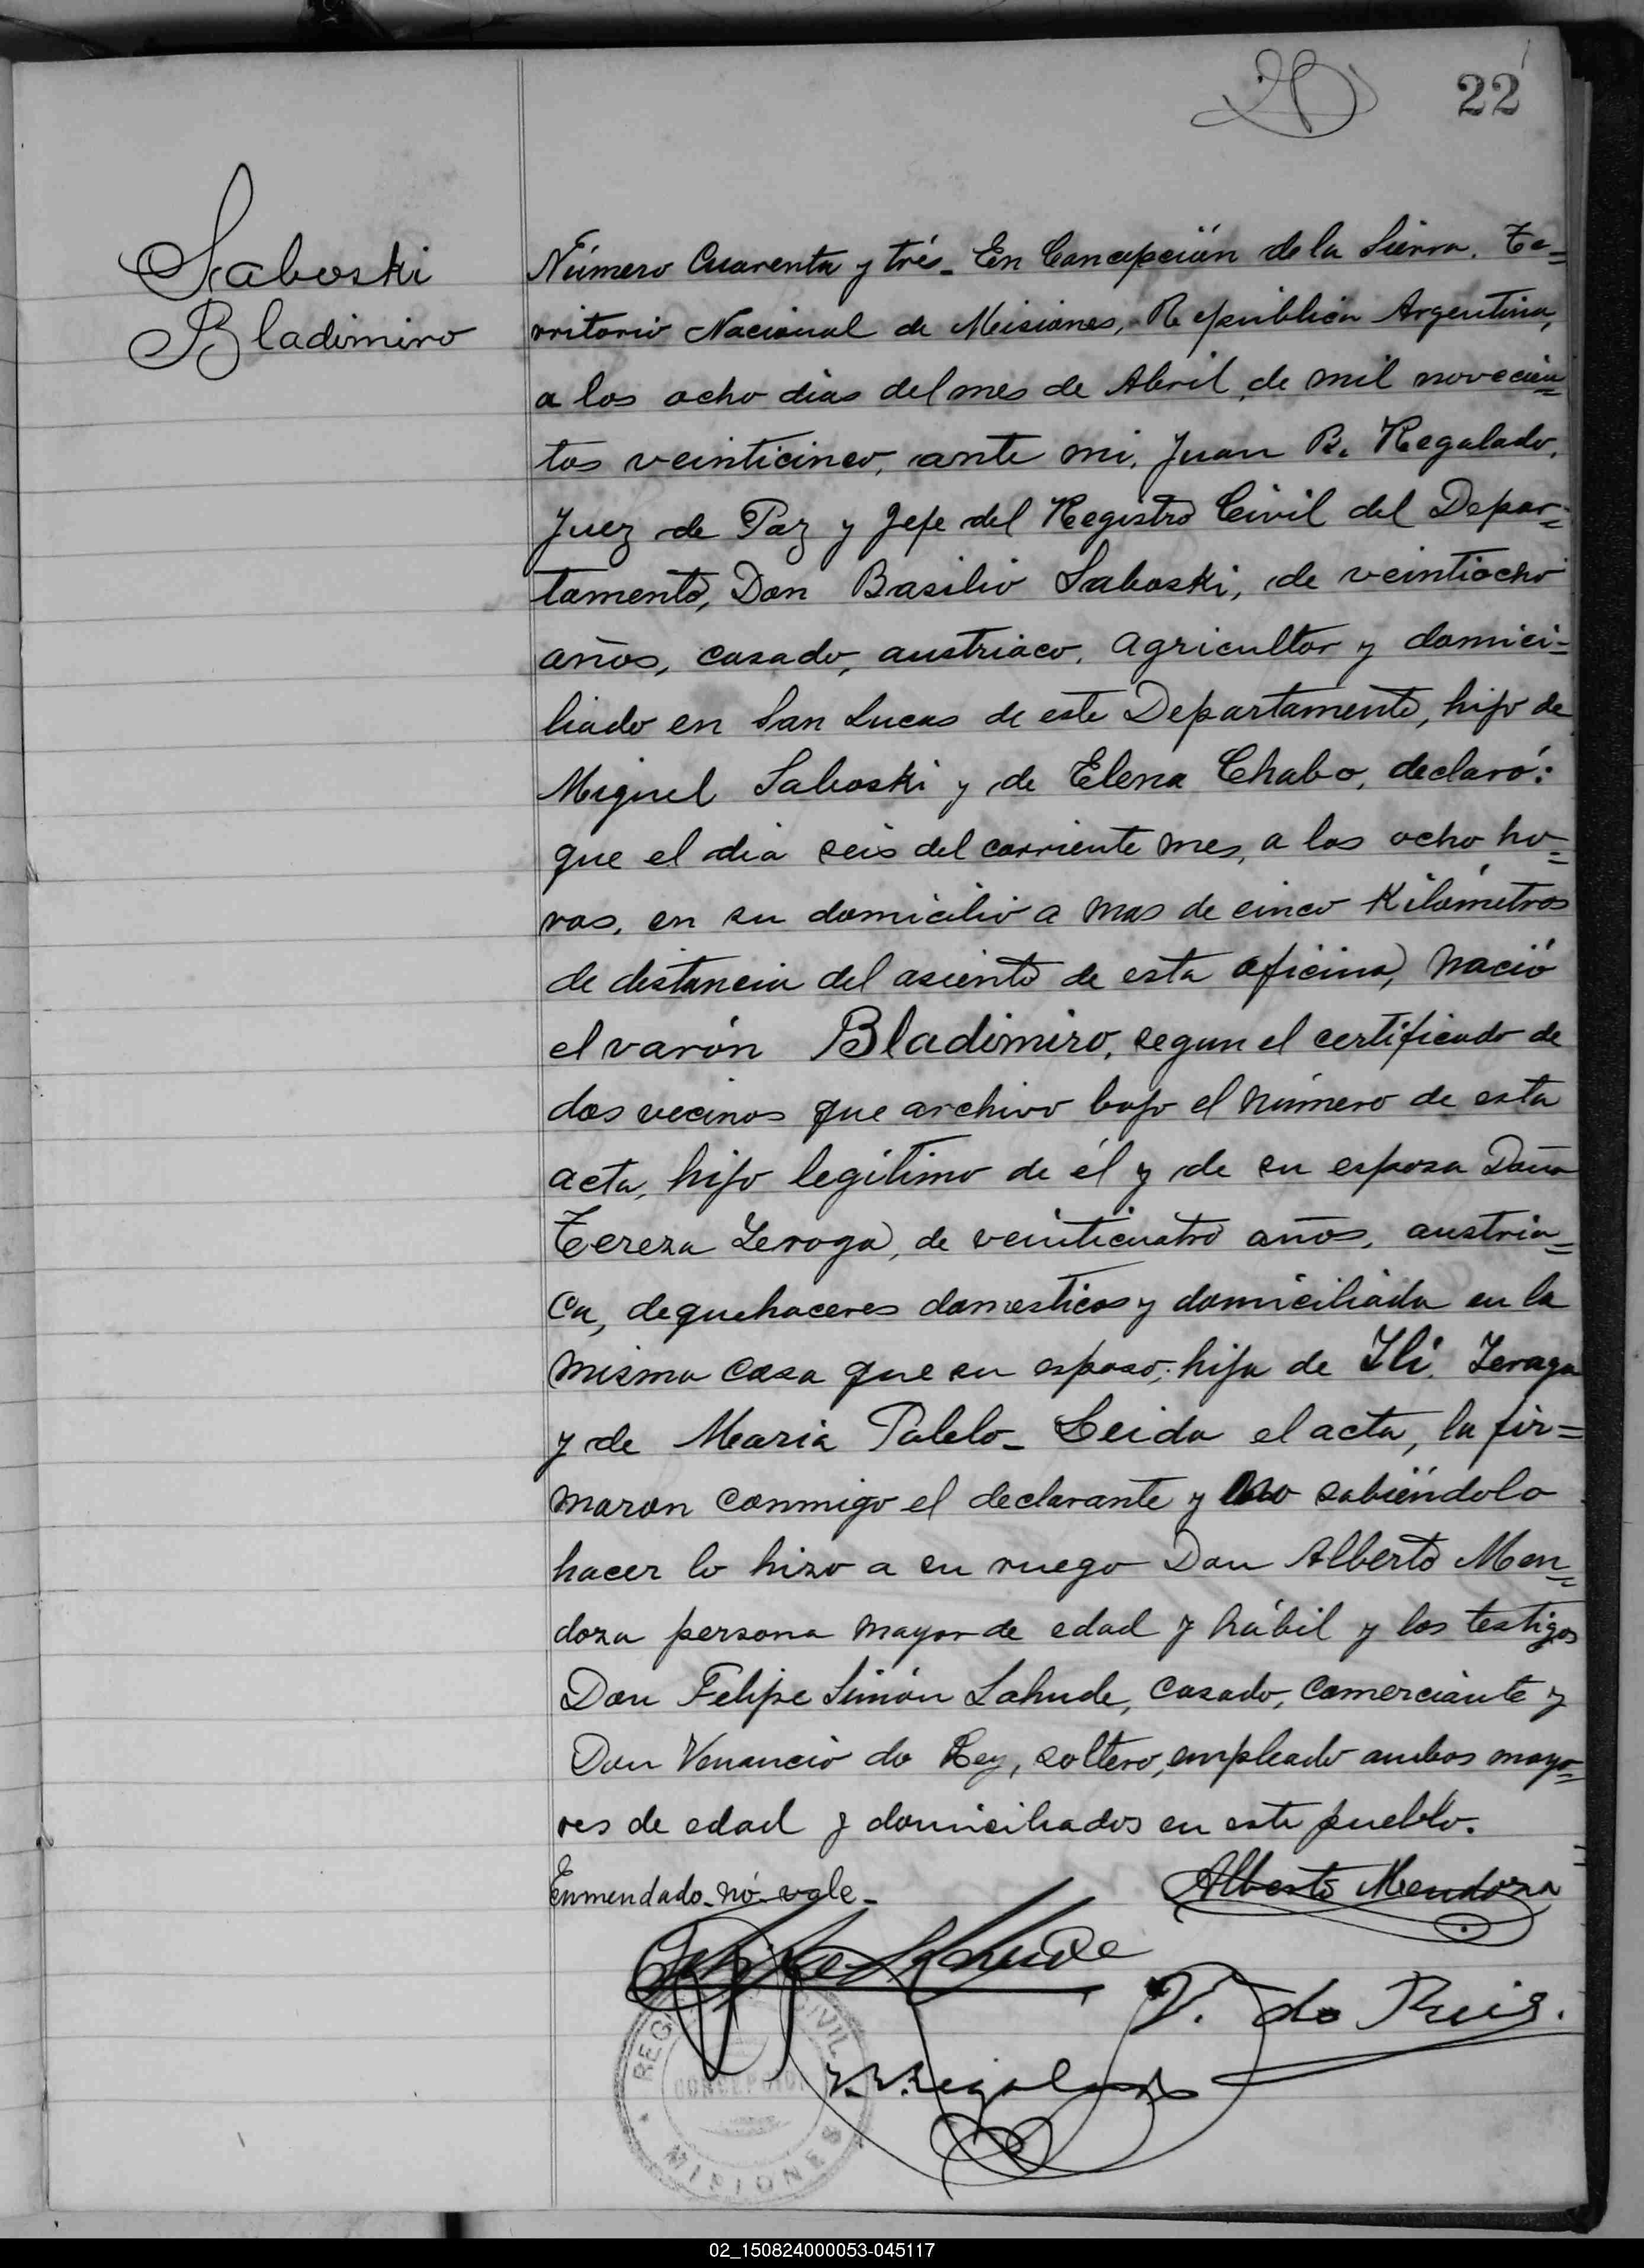 22
Saboski
Bladimiro
Número Cuarenta y trés_ En Concepción de la Sierra, Te=
rritorio Nacional de Misiones, República Argentina,
a los ocho dias del mes de Abril, de mil novecien=
tos veinticinco, ante mi, Juan B. Regalado,
Juez de Paz y Jefe del Registro Civil del Depar=
tamento, Don Basilio Saboski, de veintiocho
años, casado, austriaco, agricultor y domici=
liado en San Lucas de este Departamento, hijo de
Miguel Saboski y de Elena Chabo, declaró:
que el dia seis del corriente mes, a las ocho ho=
ras, en su domicilio a mas de cinco Kilómetros
de distancia del asiento de esta oficina, nació
el varón Bladimiro, segun el certificado de
dos vecinos que archivo bajo el número de esta
acta, hijo legítimo de él y de su esposa Doña
Tereza Zeraga, de veinticuatro años, austria=
ca, de quehaceres domesticos y domiciliada en la
misma casa que su esposo; hija de Ili Zeraga
y de Maria Palelo_ Leida el acta, la fir=
maron conmigo el declarante y no sabiéndolo
hacer lo hizo a su ruego Don Alberto Men=
doza persona mayor de edad y hábil y los testigos
Don Felipe Simón Lahude, casado, comerciante y
Don Venancio do Rey, soltero, empleado ambos mayo=
res de edad y domiciliados en este pueblo.
Enmendado_nó_vale_
Alberto Mendoza
Felipe S Lahude
V. do Reis.
J. B. Regalado
REGISTRO CIVIL
CONCEPCION
MISIONES
02_150824000053-045117